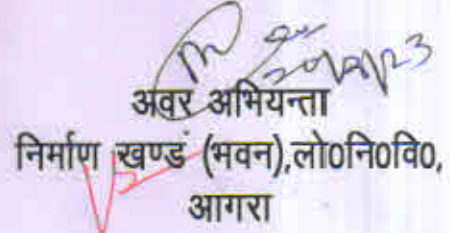 अवर अभियन्ता
निर्माण खण्ड (भवन),लो0नि0वि0,
आगरा